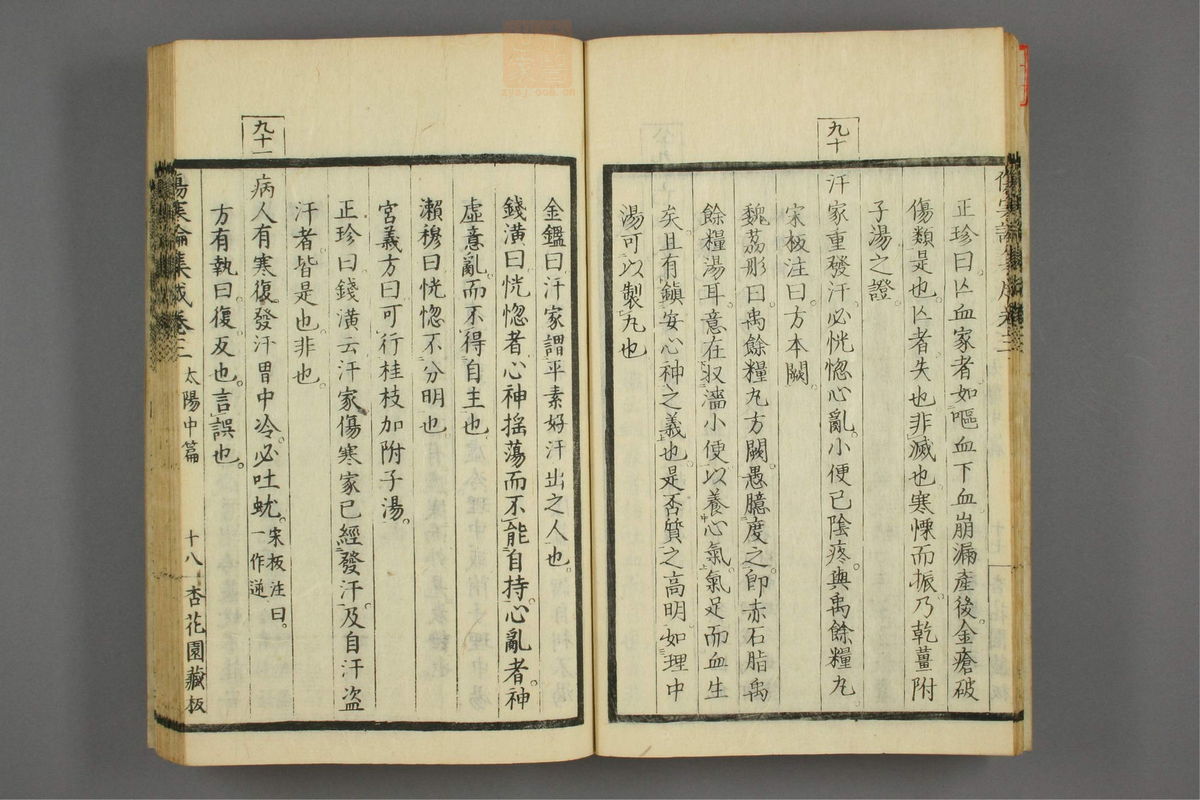 正珍曰亾血家者如嘔血下血崩漏產後金瘡破
傷類是也亾者失也非滅也寒慄而振乃乾薑附
子湯之證
九十
汗家重發汗必恍惚心亂小便已陰疼與禹餘糧丸
宋板注曰方本闕
魏荔彤曰禹餘糧丸方闕愚臆度之卽赤石脂禹
餘糧湯耳意在収濇小便以養心氣氣足而血生
矣且有鎮安心神之義也是否質之高明如理中
湯可以製丸也
金鑑曰汗家謂平素好汗出之人也
錢潢曰恍惚者心神搖蕩而不能自持心亂者神
虛意亂而不得自主也
瀨穆曰恍惚不分明也
宮義方曰可行桂枝加附子湯
正珍曰錢潢云汗家傷寒家已經發汗及自汗盜
汗者皆是也非也
九十一
病人有寒復發汗胃中冷必吐蚘宋板注曰一作逆
方有執曰復反也言誤也
傷寒論集成卷三 太陽中篇 十八 杏花園藏板